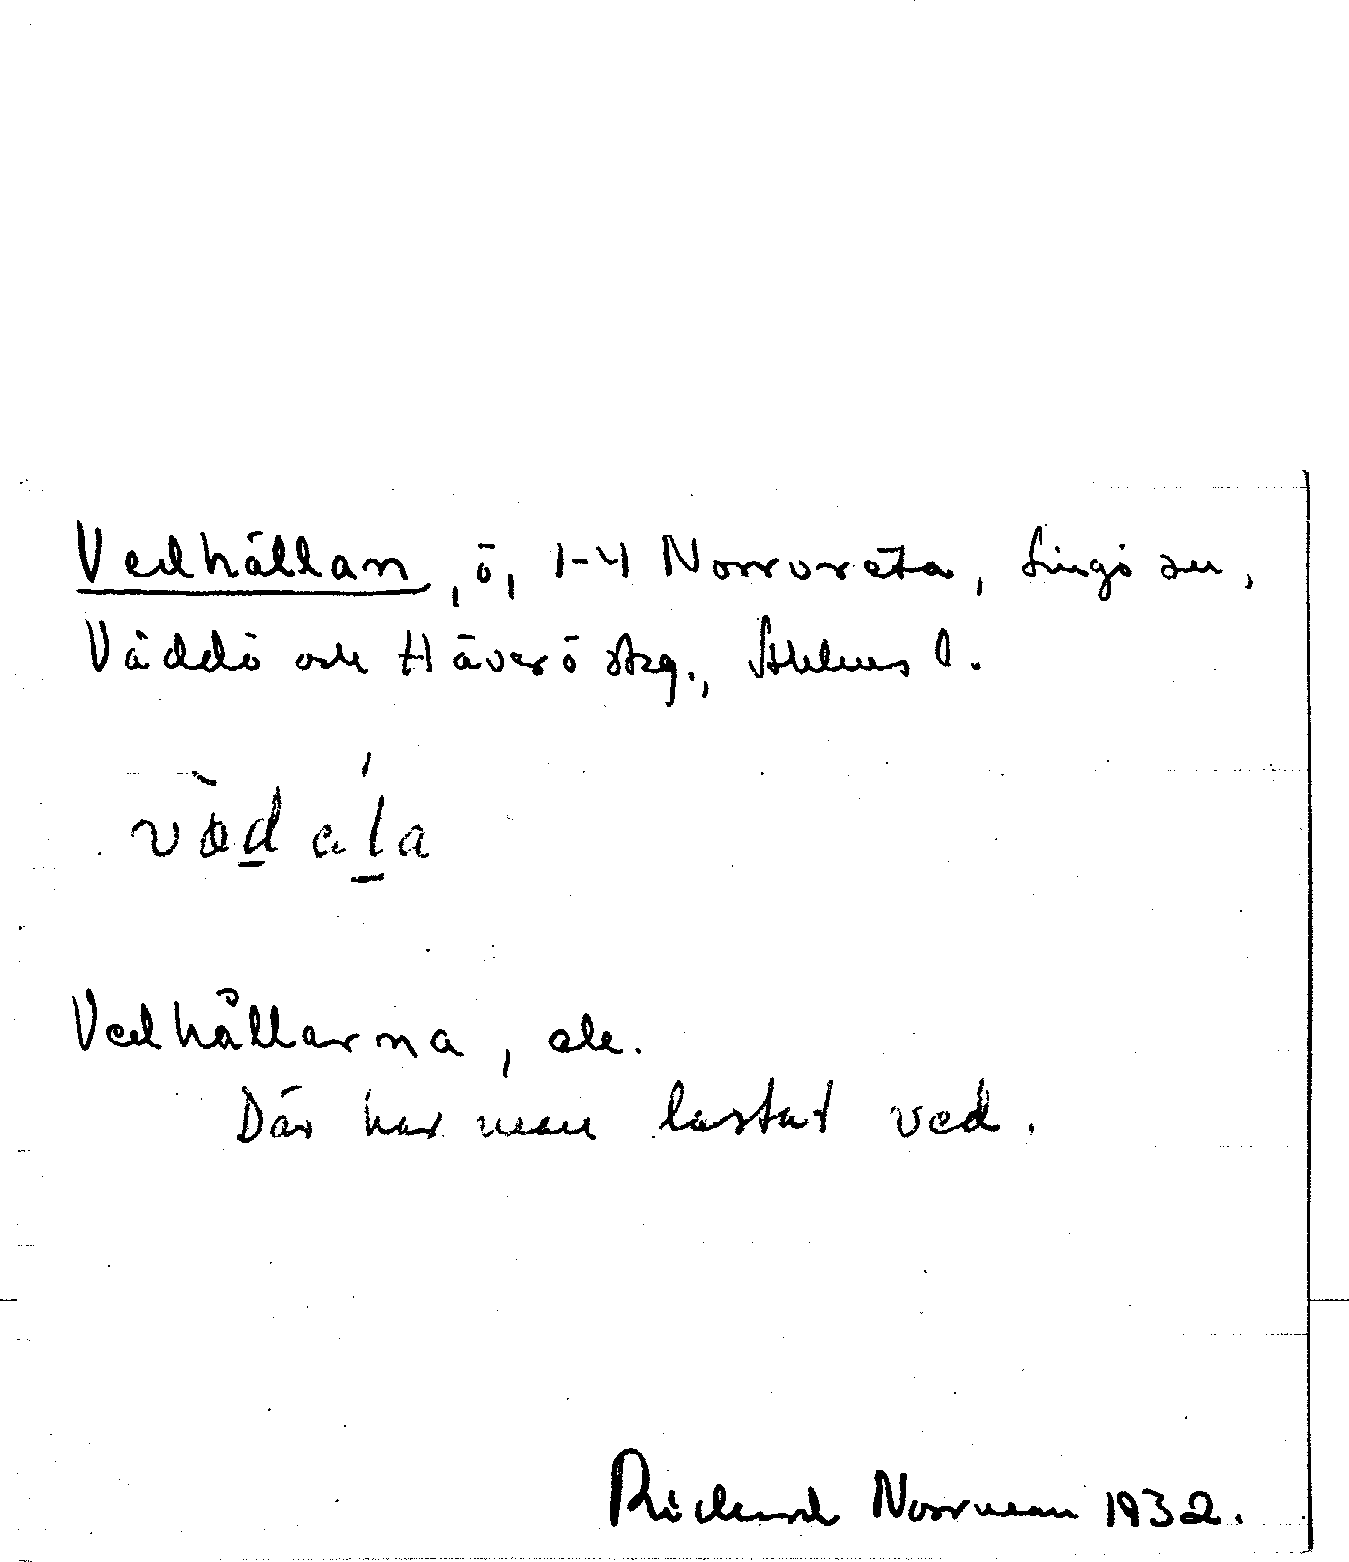 Vedhällan, ö, 1-4 Norrvreta, Singö sn,
Väddö och Häverö skg., Sthlms l.
Vedhällarna, ek.
Där har man lastat ved.
Richard Norrman 1932.